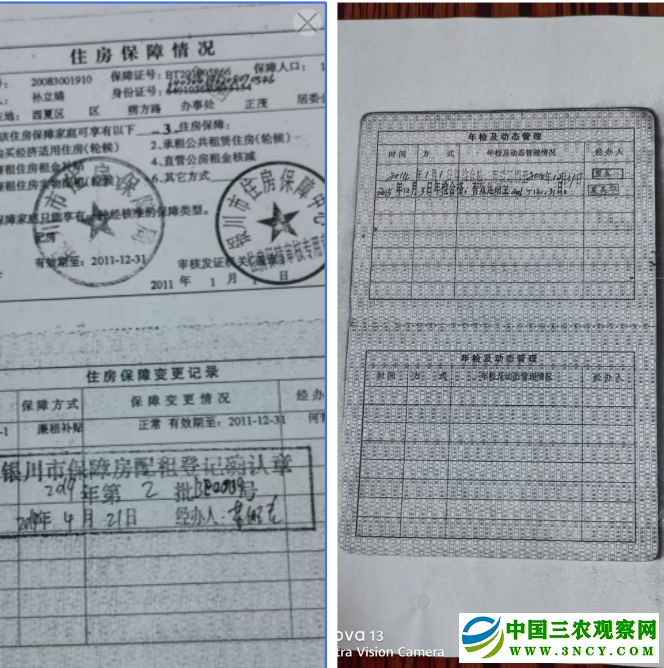 住房保障情况
号: 20083001910 保障证号: 保障人口: 1
人 孙立娟 身份证号:
主地: 西夏区 区 朔方路 办事处 正茂 居委会
该住房保障家庭可享有以下 3 住房保障:
购买经济适用住房(轮候) 2.承租公共租赁住房(轮候)
廉租住房租金补贴 4.直管公房租金核减
廉租住房实物配租(轮候) 6.其它方式
保障家庭只能享有一种经核准的保障类型。
有效期至:2011-12-31 审核发证机关(盖章)
2011 年 1 月 1 日
银川市住房保障局
银川市住房保障中心
住房保障审核专用章
住房保障变更记录
保障方式 保障变更情况 经办
-1 廉租补贴 正常 有效期至:2011-12-31 何
银川市保障房配租登记确认章
2019 年第 2 批 号
2019年 4 月 21日 经办人:
年检及动态管理
时间 方式 年检及动态管理情况 经办人
2014 年1月1
2015年12月3日年检合格,
年检及动态管理
时间 方式 年检及动态管理情况 经办人
ova 13
tra Vision Camera
中国三农观察网
WWW.3NCY.COM